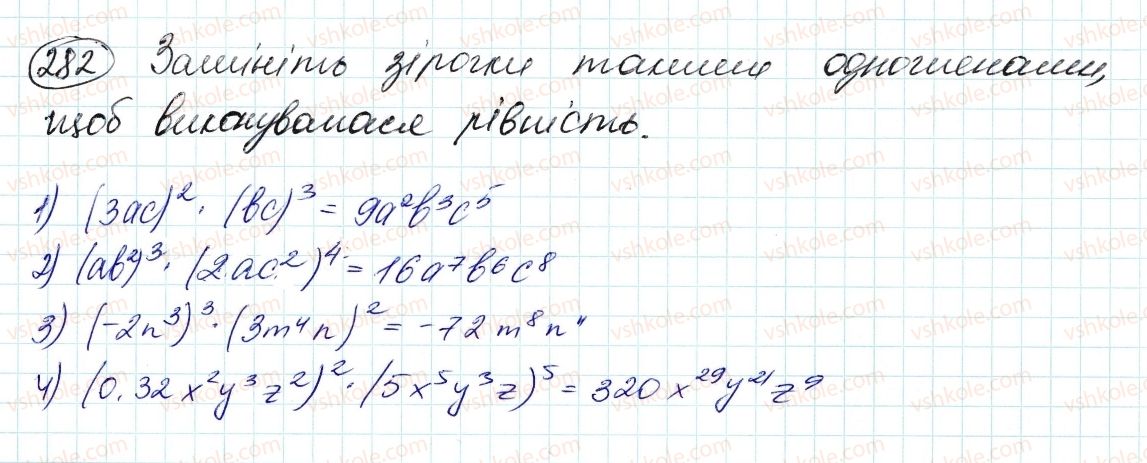 282 Замініть зірочки такими одночленами,
щоб виконувалася рівність.
1) (3ac)² · (bc)³ = 9a²b³c⁵
2) (ab²)³ · (2ac²)⁴ = 16a⁷b⁶c⁸
3) (-2n³)³ · (3m⁴n)² = -72m⁸n¹¹
4) (0,32x²y³z²)² · (5x⁵y³z)⁵ = 320x²⁹y²¹z⁹